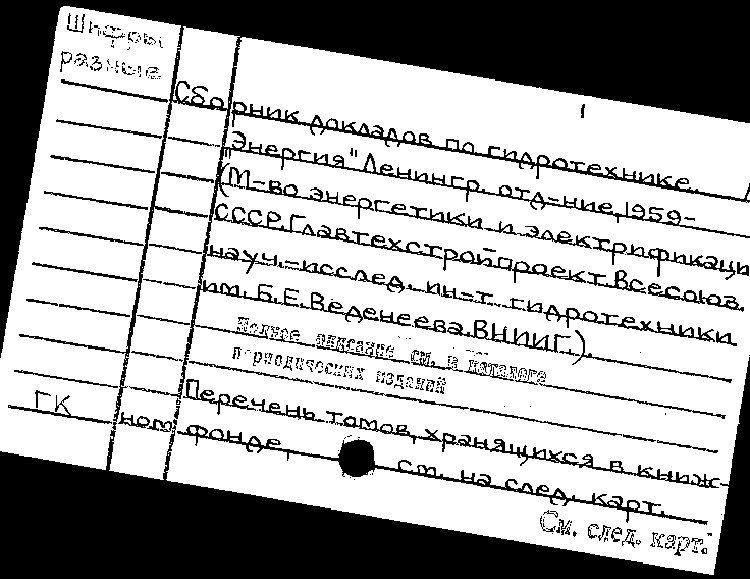 Шифры
разные
1
Сборник докладов по гидротехнике.
"Энергия" Ленингр. отд-ние, 1959-
(М-во энергетики и электрификаци
СССР. Главтехстройпроект. Всесоюз.
науч.-исслед. ин-т гидротехники
им. Б.Е.Веденеева. ВНИИГ.).
Полное описание см. в каталоге
периодических изданий
ГК
Перечень томов, хранящихся в книж-
ном фонде, см. на след. карт.
См. след. карт.